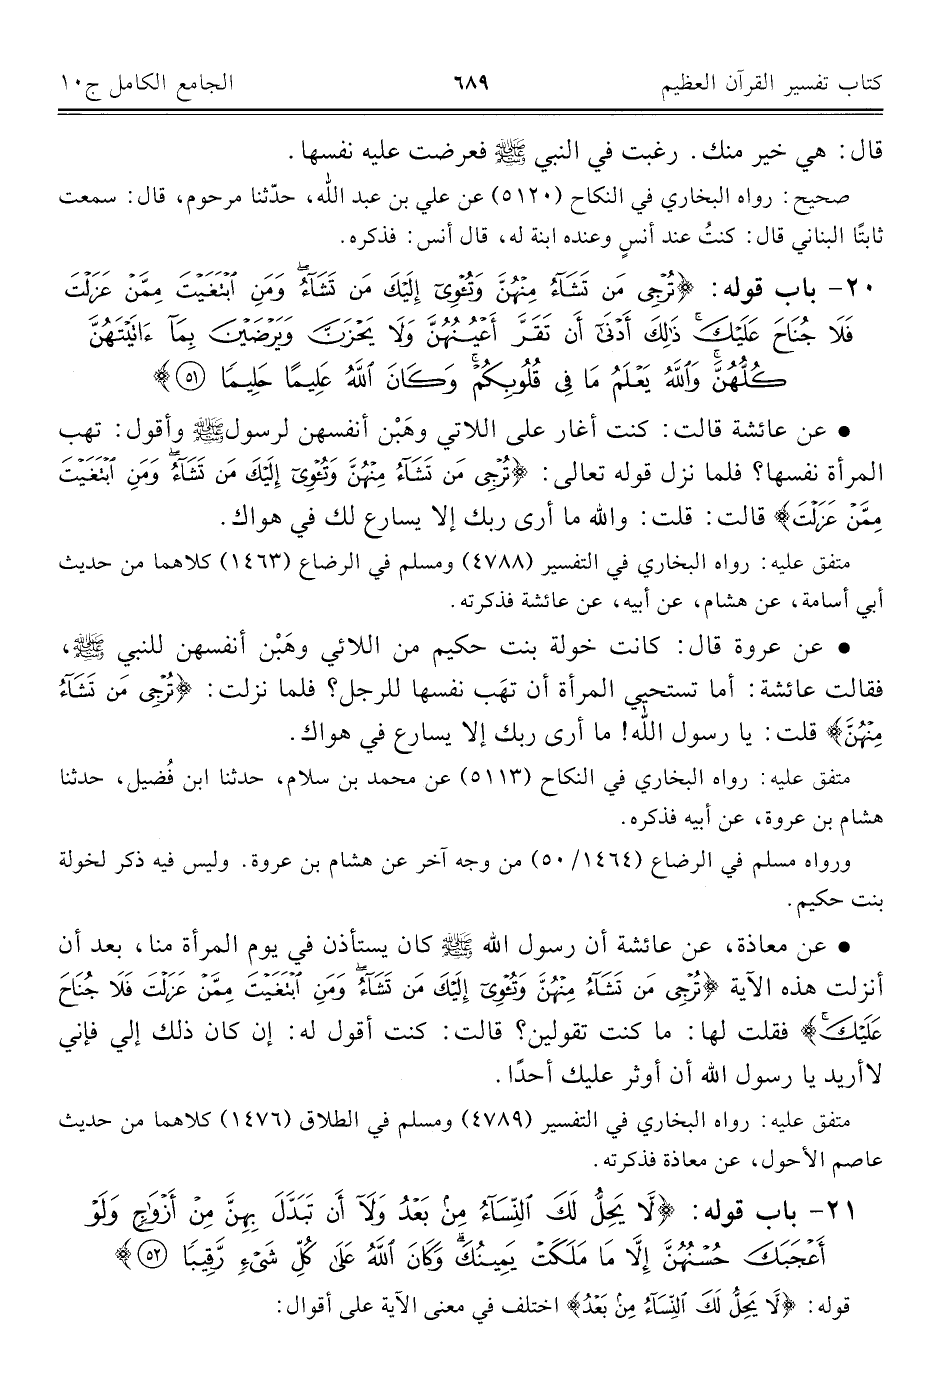 كتاب تفسير القرآن العظيم ٦٨٩ الجامع الكامل ج١٠
قال: هي خير منك. رغبت في النبي ﷺ فعرضت عليه نفسها.
صحيح: رواه البخاري في النكاح (٥١٢٠) عن علي بن عبد الله، حدّثنا مرحوم، قال: سمعت
ثابتًا البناني قال: كنتُ عند أنسٍ وعنده ابنة له، قال أنس: فذكره.
٢٠- باب قوله: ﴿تُرْجِي مَن تَشَآءُ مِنْهُنَّ وَتُـْٔوِيٓ إِلَيْكَ مَن تَشَآءُ ۖ وَمَنِ ٱبْتَغَيْتَ مِمَّنْ عَزَلْتَ
فَلَا جُنَاحَ عَلَيْكَ ۚ ذَٰلِكَ أَدْنَىٰٓ أَن تَقَرَّ أَعْيُنُهُنَّ وَلَا يَحْزَنَّ وَيَرْضَيْنَ بِمَآ ءَاتَيْتَهُنَّ
كُلُّهُنَّ ۚ وَٱللَّهُ يَعْلَمُ مَا فِي قُلُوبِكُمْ ۚ وَكَانَ ٱللَّهُ عَلِيمًا حَلِيمًا (٥١)﴾
• عن عائشة قالت: كنت أغار على اللاتي وهَبْن أنفسهن لرسول ﷺ وأقول: تهب
المرأة نفسها؟ فلما نزل قوله تعالى: ﴿تُرْجِي مَن تَشَآءُ مِنْهُنَّ وَتُـْٔوِيٓ إِلَيْكَ مَن تَشَآءُ ۖ وَمَنِ ٱبْتَغَيْتَ
مِمَّنْ عَزَلْتَ﴾ قالت: قلت: والله ما أرى ربك إلا يسارع لك في هواك.
متفق عليه: رواه البخاري في التفسير (٤٧٨٨) ومسلم في الرضاع (١٤٦٣) كلاهما من حديث
أبي أسامة، عن هشام، عن أبيه، عن عائشة فذكرته.
• عن عروة قال: كانت خولة بنت حكيم من اللائي وهَبْن أنفسهن للنبي ﷺ،
فقالت عائشة: أما تستحيي المرأة أن تهَب نفسها للرجل؟ فلما نزلت: ﴿تُرْجِي مَن تَشَآءُ
مِنْهُنَّ﴾ قلت: يا رسول الله! ما أرى ربك إلا يسارع في هواك.
متفق عليه: رواه البخاري في النكاح (٥١١٣) عن محمد بن سلام، حدثنا ابن فُضيل، حدثنا
هشام بن عروة، عن أبيه فذكره.
ورواه مسلم في الرضاع (١٤٦٤/ ٥٠) من وجه آخر عن هشام بن عروة. وليس فيه ذكر لخولة
بنت حكيم.
• عن معاذة، عن عائشة أن رسول الله ﷺ كان يستأذن في يوم المرأة منا، بعد أن
أنزلت هذه الآية ﴿تُرْجِي مَن تَشَآءُ مِنْهُنَّ وَتُـْٔوِيٓ إِلَيْكَ مَن تَشَآءُ ۖ وَمَنِ ٱبْتَغَيْتَ مِمَّنْ عَزَلْتَ فَلَا جُنَاحَ
عَلَيْكَ ۚ﴾ فقلت لها: ما كنت تقولين؟ قالت: كنت أقول له: إن كان ذلك إلي فإني
لاأريد يا رسول الله أن أوثر عليك أحدًا.
متفق عليه: رواه البخاري في التفسير (٤٧٨٩) ومسلم في الطلاق (١٤٧٦) كلاهما من حديث
عاصم الأحول، عن معاذة فذكرته.
٢١- باب قوله: ﴿لَّا يَحِلُّ لَكَ ٱلنِّسَآءُ مِنۢ بَعْدُ وَلَآ أَن تَبَدَّلَ بِهِنَّ مِنْ أَزْوَٰجٍ وَلَوْ
أَعْجَبَكَ حُسْنُهُنَّ إِلَّا مَا مَلَكَتْ يَمِينُكَ ۗ وَكَانَ ٱللَّهُ عَلَىٰ كُلِّ شَيْءٍ رَّقِيبًا (٥٢)﴾
قوله: ﴿لَّا يَحِلُّ لَكَ ٱلنِّسَآءُ مِنۢ بَعْدُ﴾ اختلف في معنى الآية على أقوال: